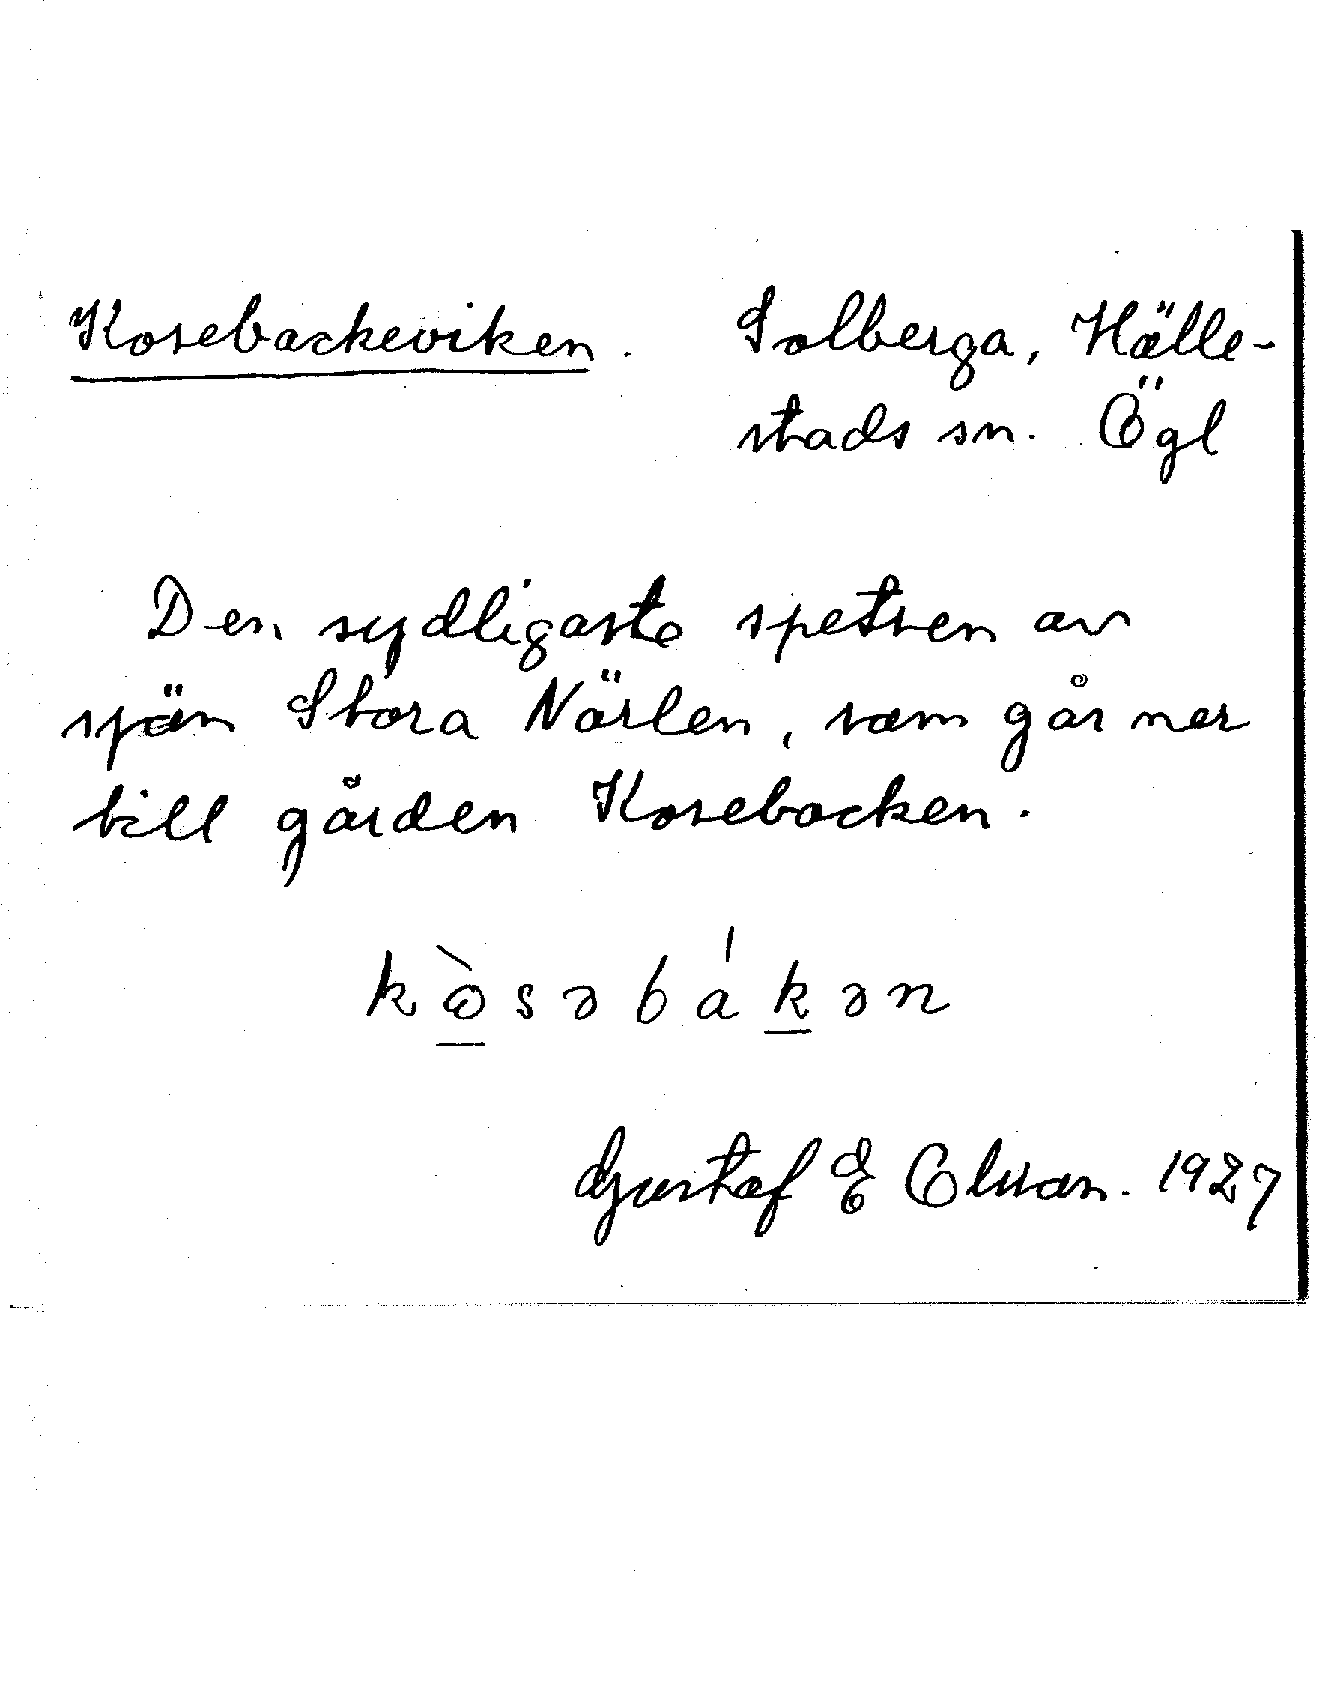 Kosebackeviken. Solberga, Hälle-
stads sn. Ögl
Den sydligaste spetsen av
sjön Stora Nörlen, som går ner
till gården Kosebacken.
kòsəbákən
Gustaf E Olsson. 1927